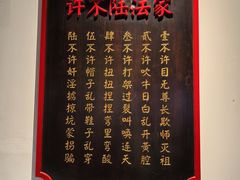 许不陆法家
壹不许目无尊长欺师灭祖
贰不许吹牛日白乱开黄腔
叁不许打架过裂叫唤连天
肆不许扭扭捏捏弯里弯酸
伍不许帽子乱带鞋子乱穿
陆不许奸淫掳掠坑蒙拐骗